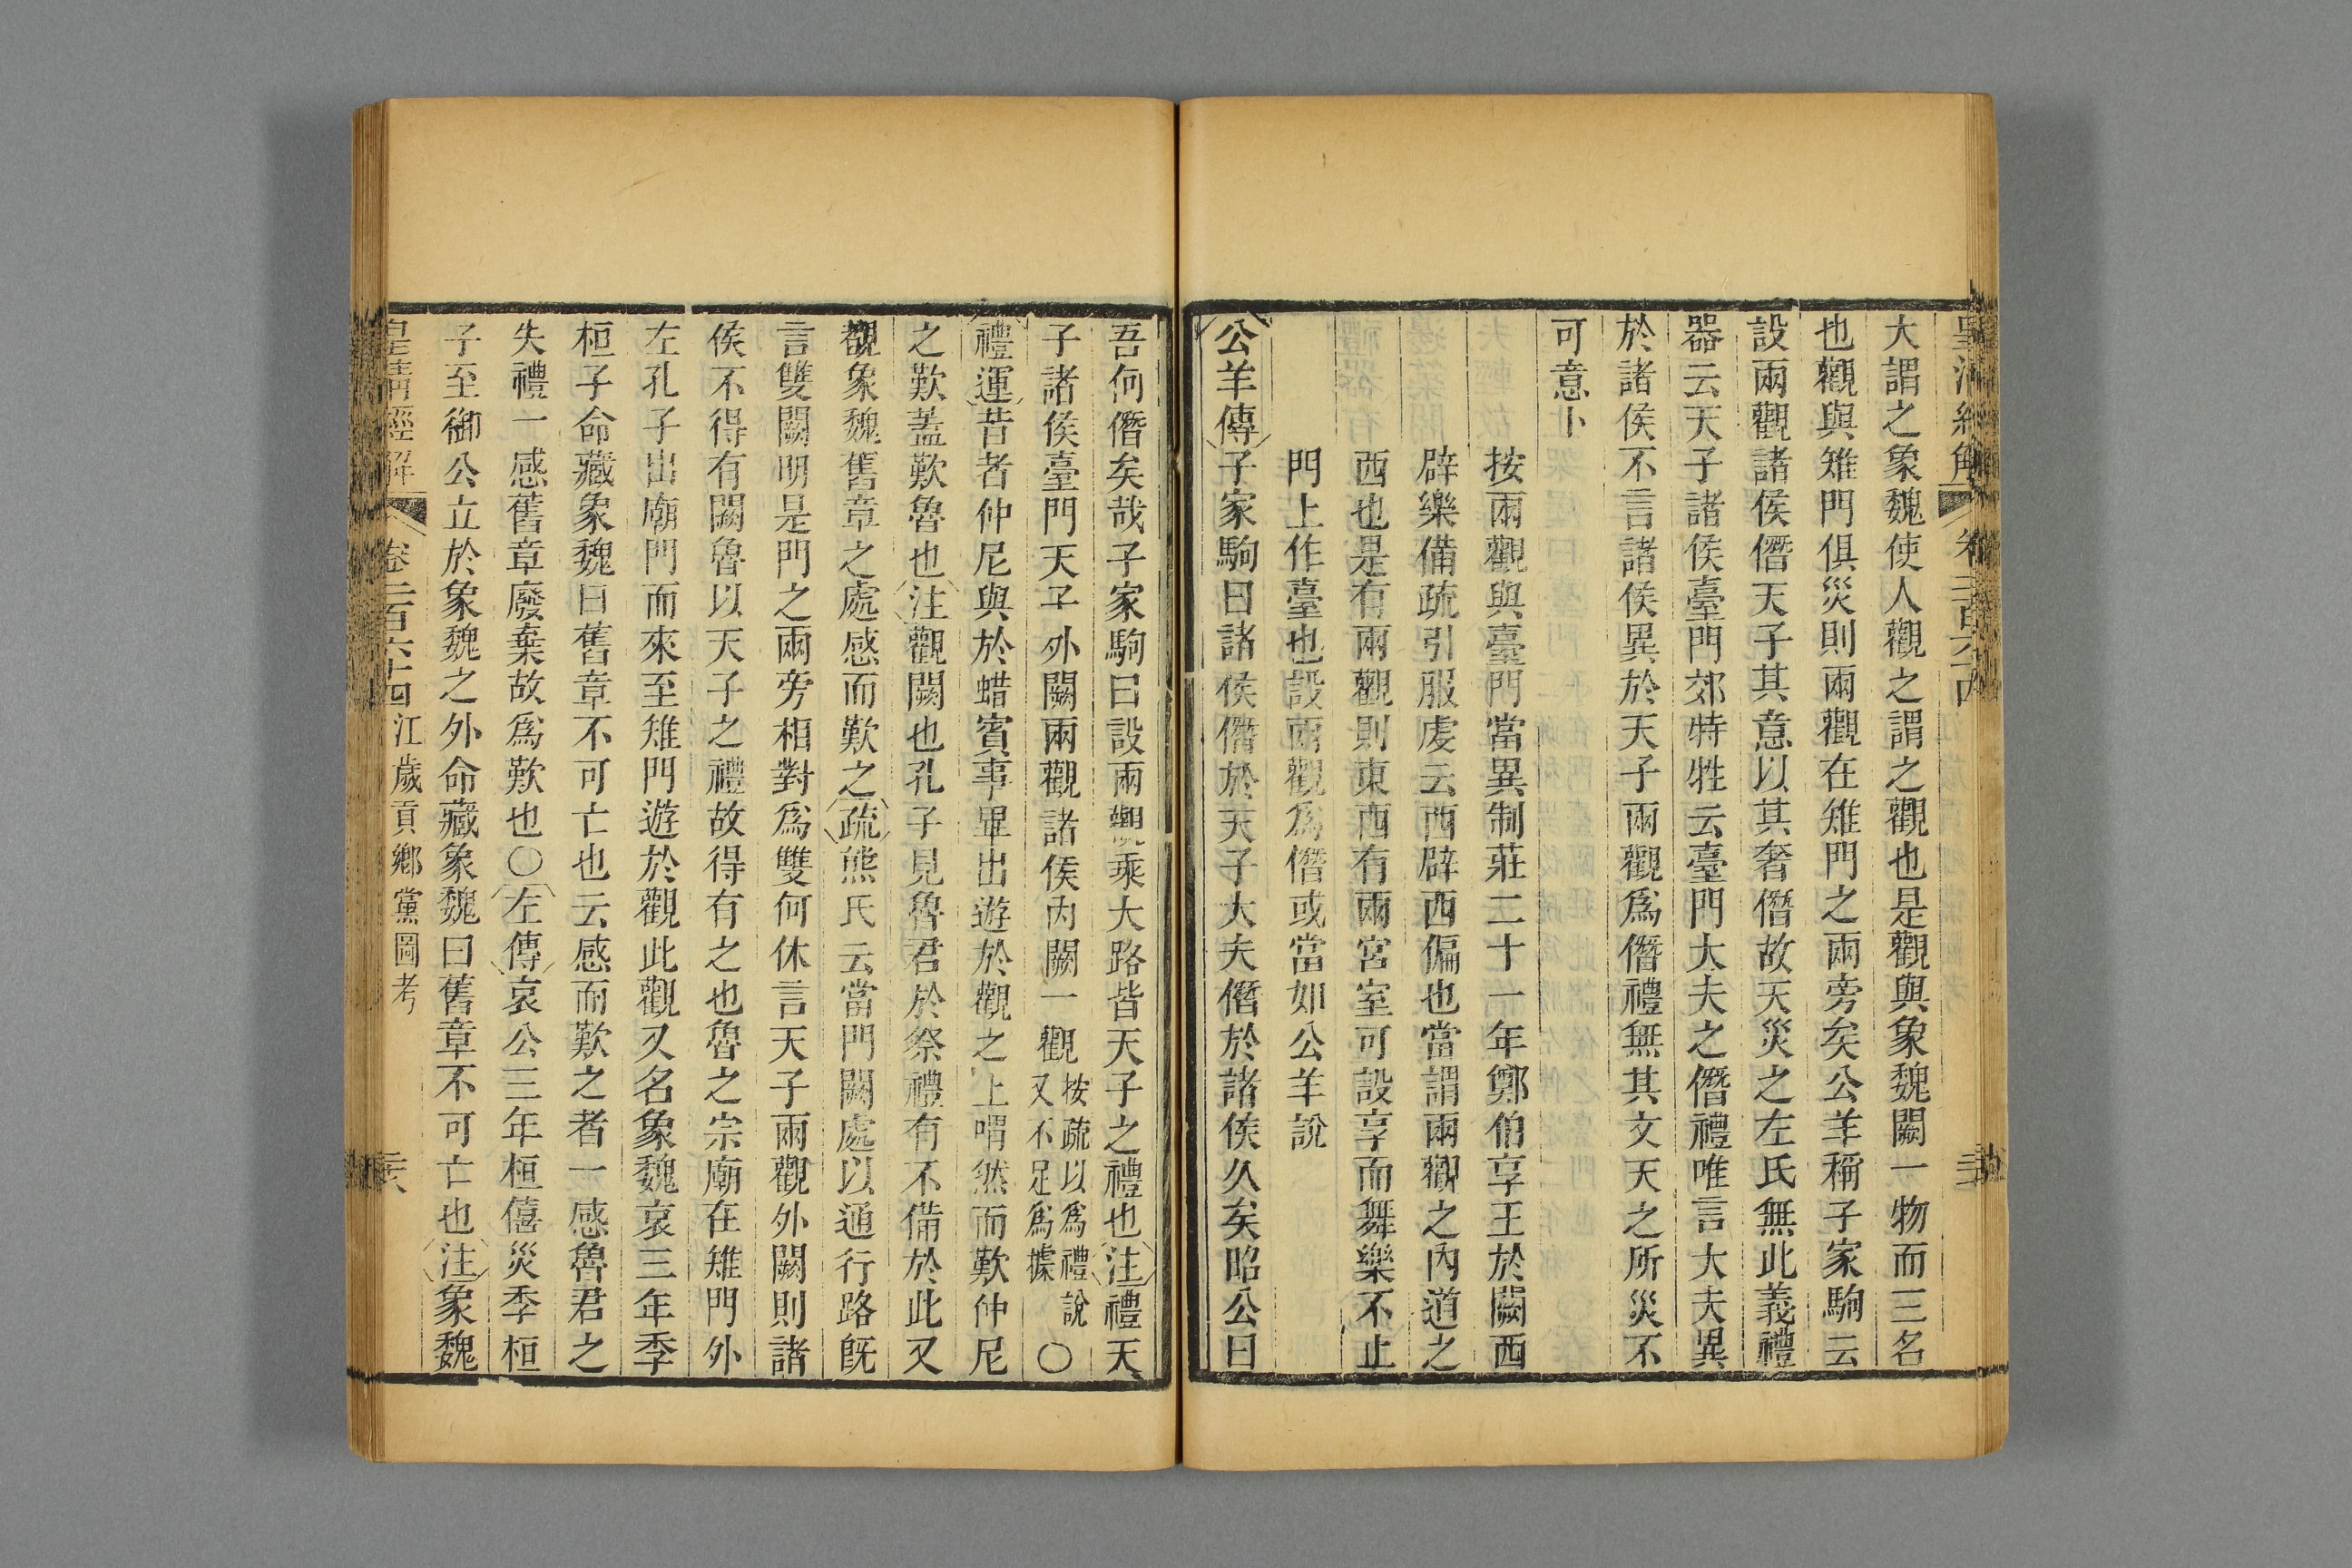 大謂之象魏使人觀之謂之觀也是觀與象魏闕一物而三名
也觀與雉門俱災則兩觀在雉門之兩旁矣公羊稱子家駒云
設兩觀諸侯僭天子其意以其奢僭故天災之左氏無此義禮
器云天子諸侯臺門郊特牲云臺門大夫之僭禮唯言大夫異
於諸侯不言諸侯異於天子兩觀爲僭禮無其文天之所災不
可意卜
按兩觀與臺門當異制莊二十一年鄭伯享王於闕西
辟樂備疏引服虔云西辟西偏也當謂兩觀之內道之
西也是有兩觀則東西有兩宮室可設享而舞樂不止
門上作臺也設兩觀爲僭或當如公羊說
公羊傳子家駒曰諸侯僭於天子大夫僭於諸侯久矣昭公曰
吾何僭矣哉子家駒曰設兩觀乘大路皆天子之禮也注禮天
子諸侯臺門天子外闕兩觀諸侯內闕一觀按疏以爲禮說又不足爲據〇
禮運昔者仲尼與於蜡賓事畢出遊於觀之上喟然而歎仲尼
之歎蓋歎魯也注觀闕也孔子見魯君於祭禮有不備於此又
覩象魏舊章之處感而歎之疏熊氏云當門闕處以通行路旣
言雙闕明是門之兩旁相對爲雙何休言天子兩觀外闕則諸
侯不得有闕魯以天子之禮故得有之也魯之宗廟在雉門外
左孔子出廟門而來至雉門遊於觀此觀又名象魏哀三年季
桓子命藏象魏曰舊章不可亡也云感而歎之者一感魯君之
失禮一感舊章廢棄故爲歎也〇左傳哀公三年桓僖災季桓
子至御公立於象魏之外命藏象魏曰舊章不可亡也注象魏
皇淸經解 卷二百六十四 江歲貢鄉黨圖考